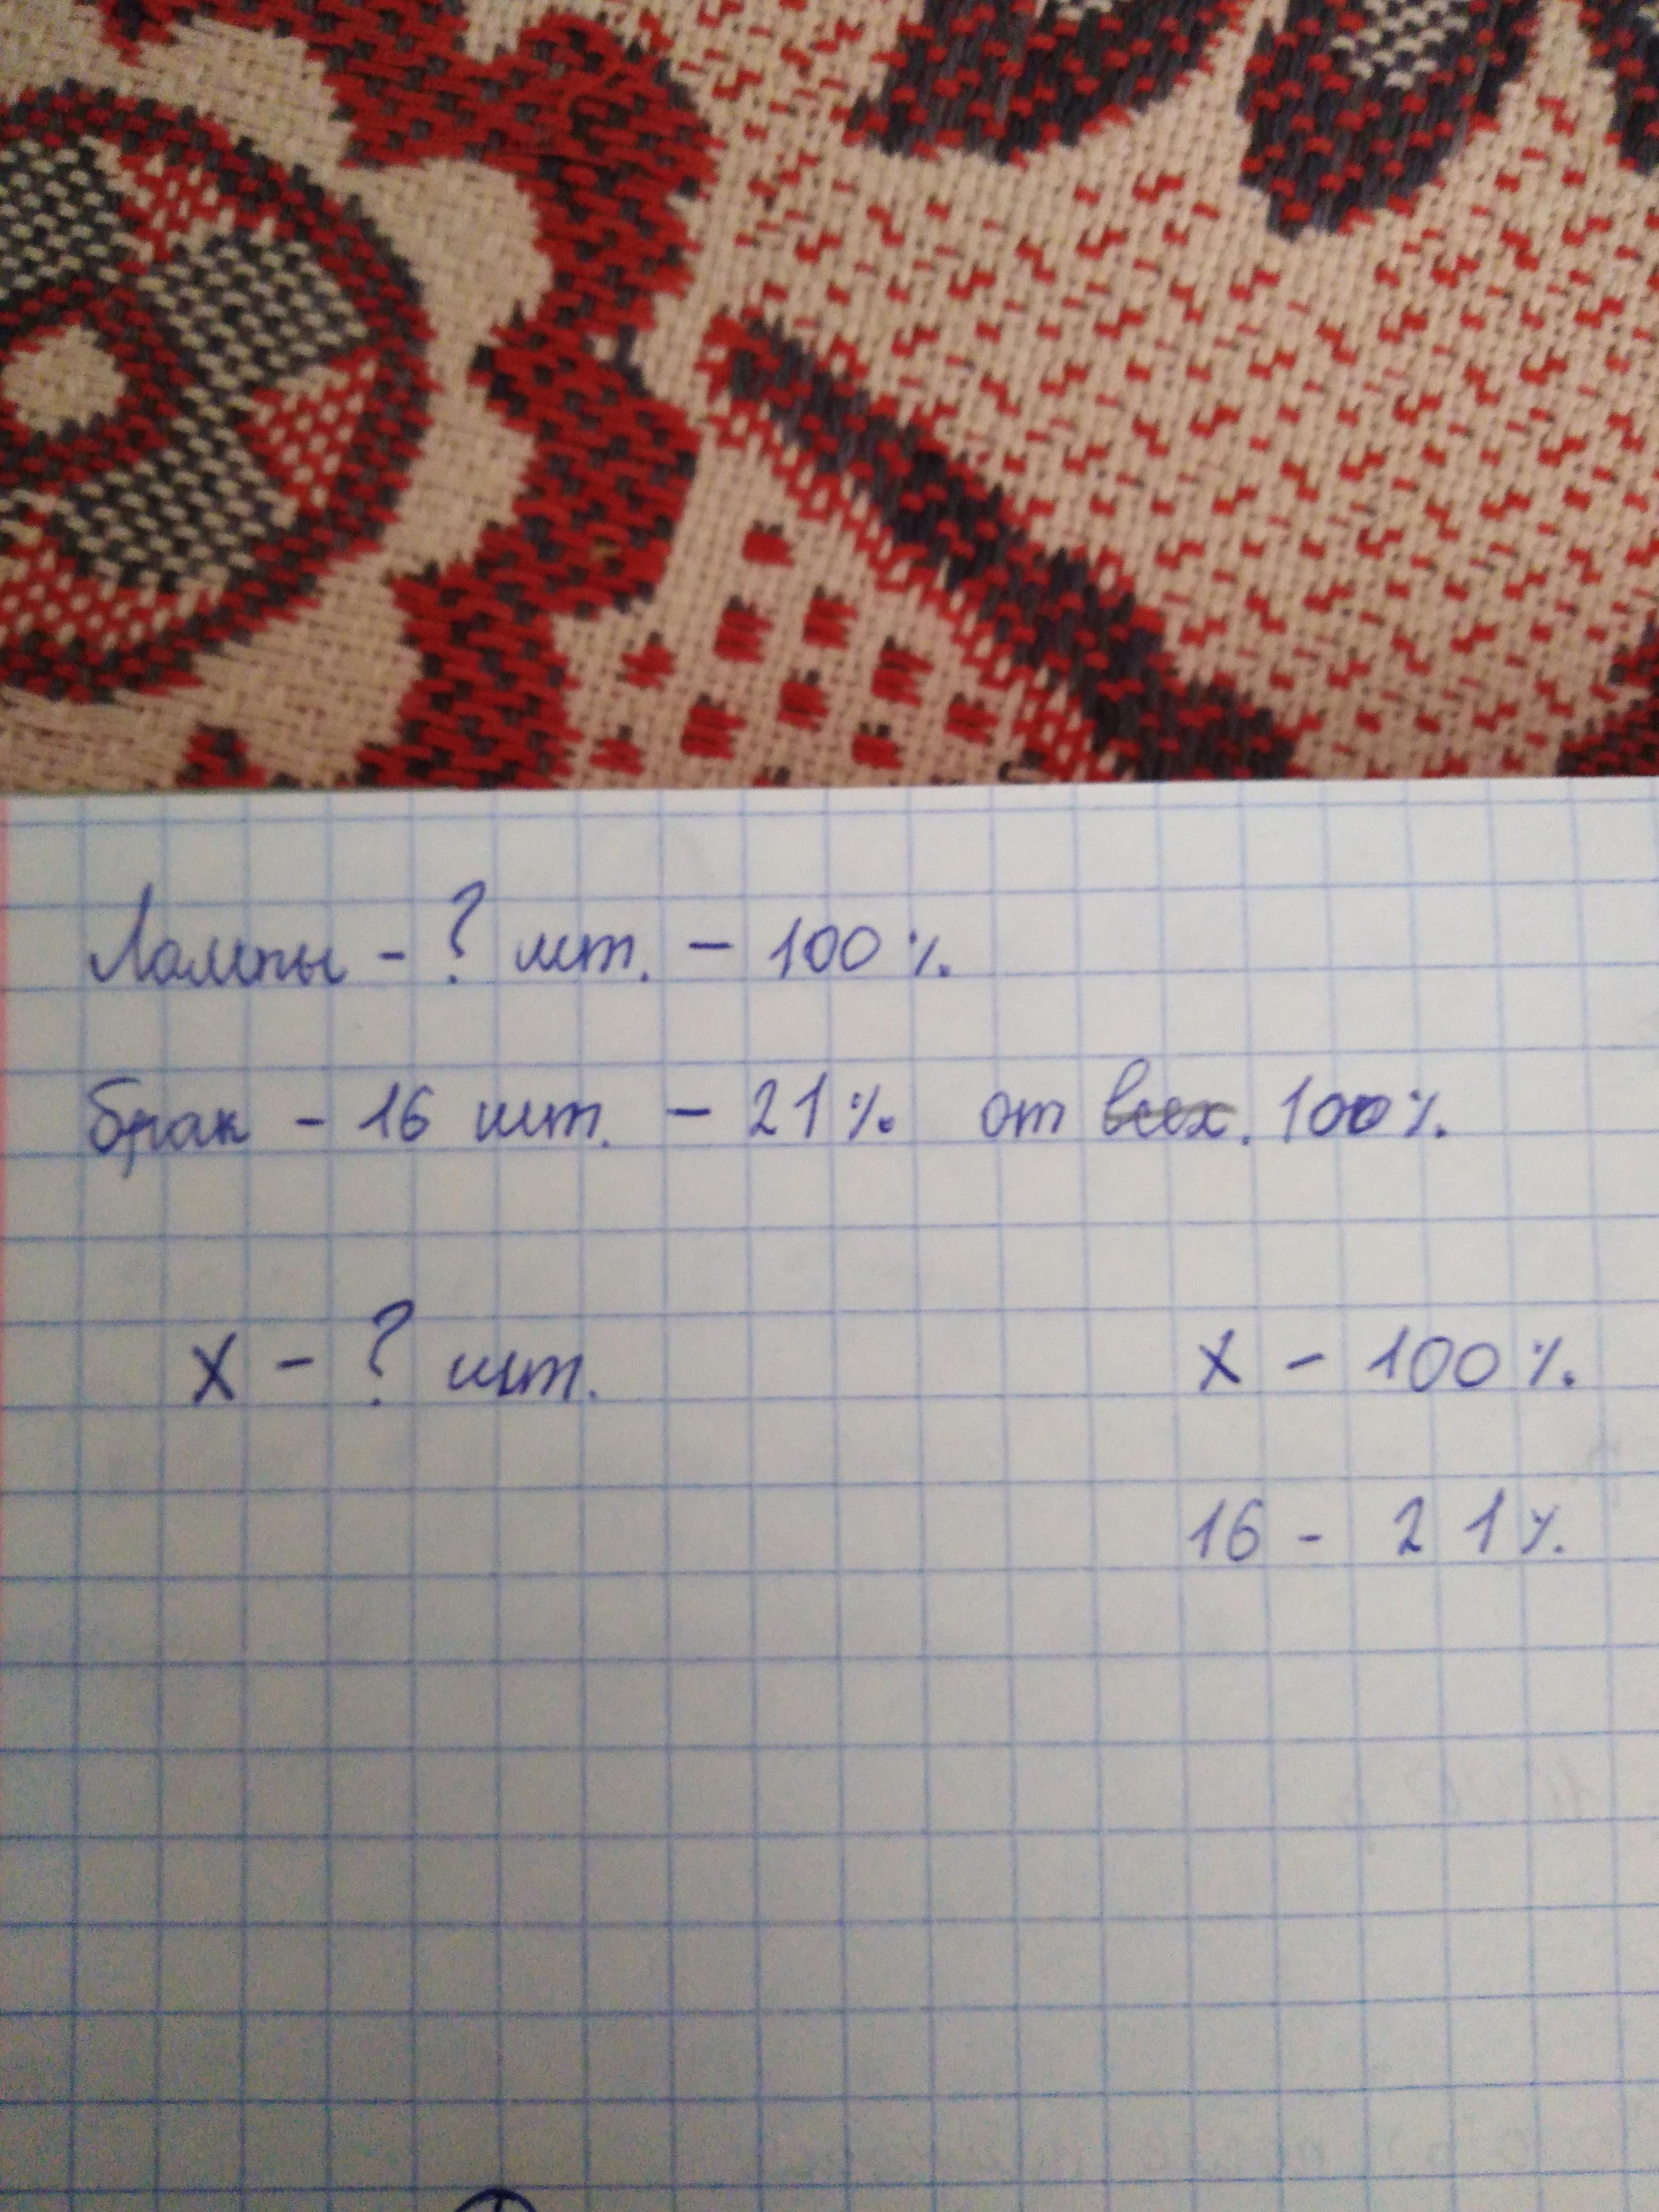 Лампы - ? шт. - 100%
брак - 16 шт. - 21% от всех. 100%
x - ? шт. x - 100%
16 - 21%